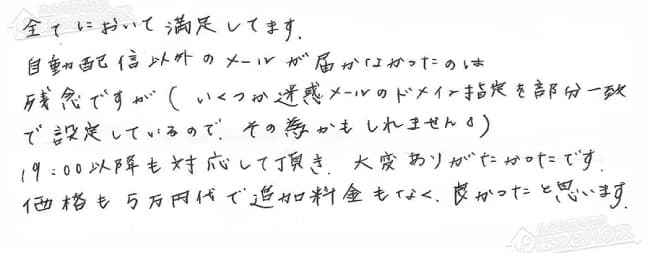 全てにおいて満足してます.
自動配信以外のメールが届かなかったのは
残念ですが(いくつか迷惑メールのドメイン指定を部分一致
で設定しているので、その為かもしれません。)
19:00以降も対応して頂き、大変ありがたかったです.
価格も5万円代で追加料金もなく、良かったと思います.